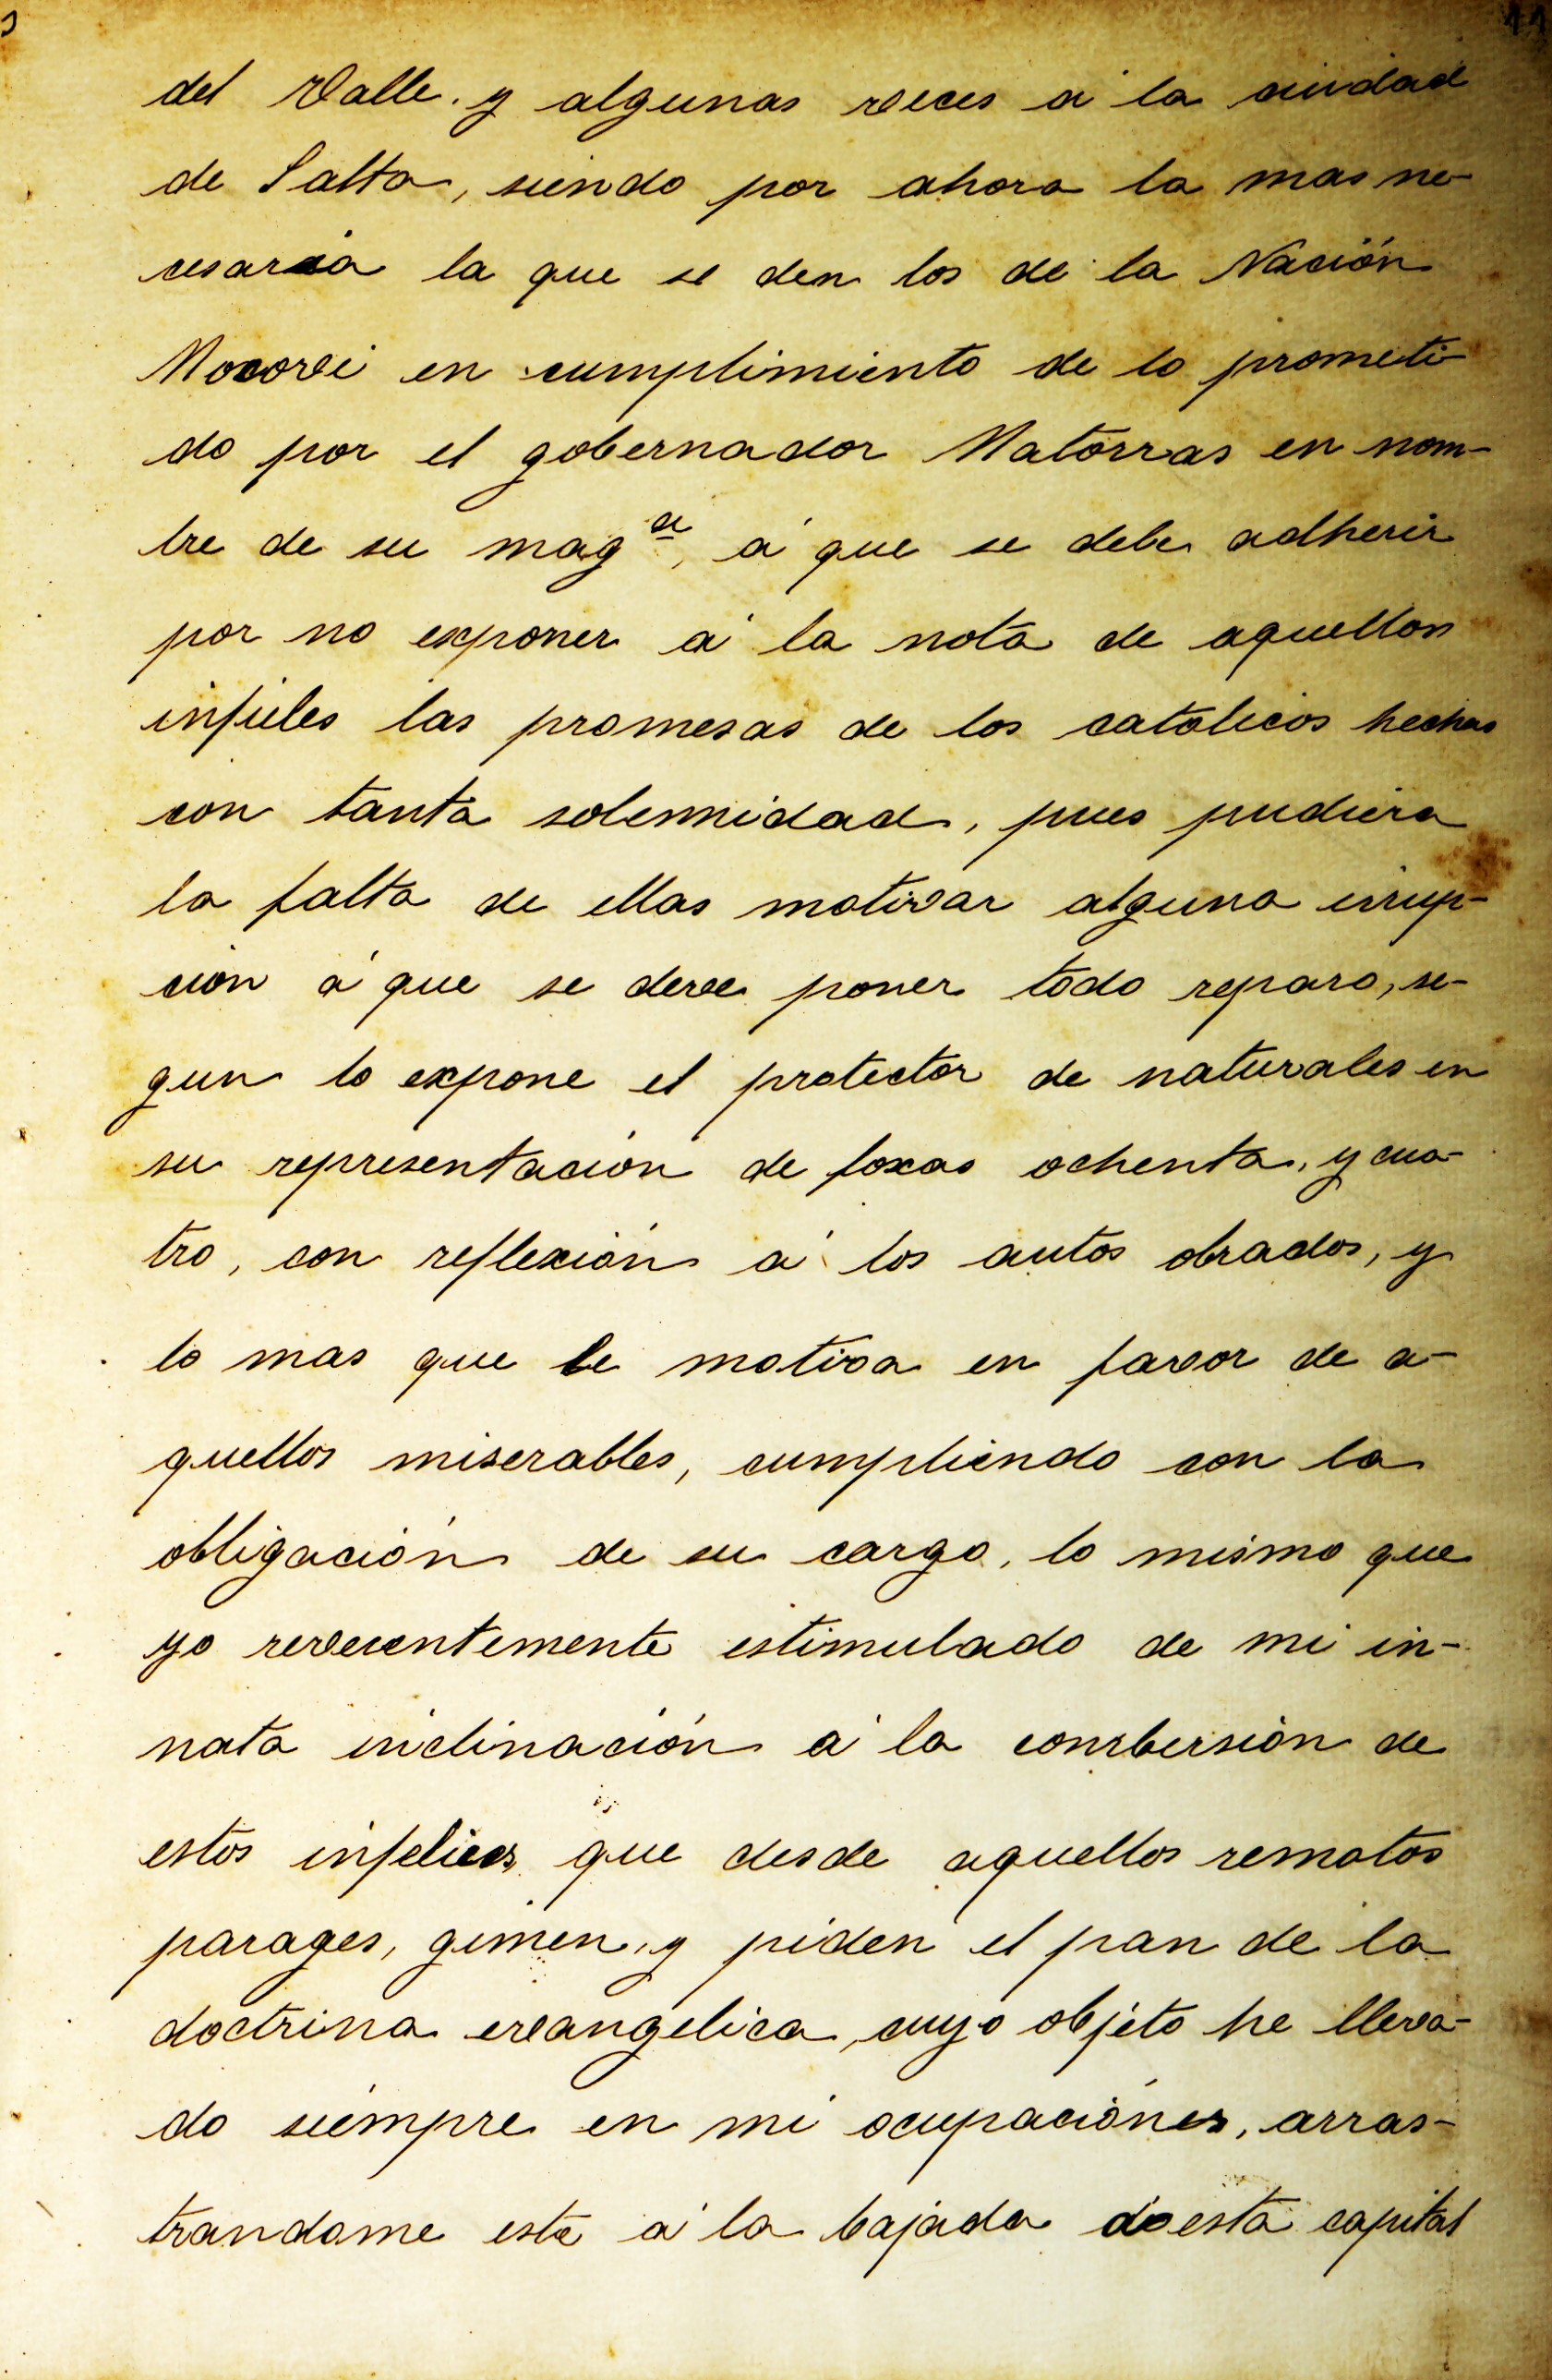 del Valle. y algunas veces á la ciudad
de Salta, siendo por ahora la mas ne-
cesaria la que se den los de la Nación
Mocovi en cumplimiento de lo prometi-
do por el gobernador Matorras en nom-
bre de su magde, á que se debe adherir
por no exponer á la nota de aquellos
infieles las promesas de los catolicos hechas
con tanta solemnidad, pues pudiera
la falta de ellas motivar alguna irrup-
cion á que se deve poner todo reparo, se-
gun lo expone el protector de naturales en
su representación de foxas ochenta, y cua-
tro, con reflexión á los autos obrados, y
lo mas que le motiva en favor de a-
quellos miserables, cumpliendo con la
obligación de su cargo, lo mismo que
yo reverentemente estimulado de mi in-
nata inclinación á la combersión de
estos infelices que desde aquellos remotos
parages, gimen, y piden el pan de la
doctrina evangelica, cuyo objeto he lleva-
do siempre en mi ocupaciónes, arras-
trandome este á la bajada de esta capital